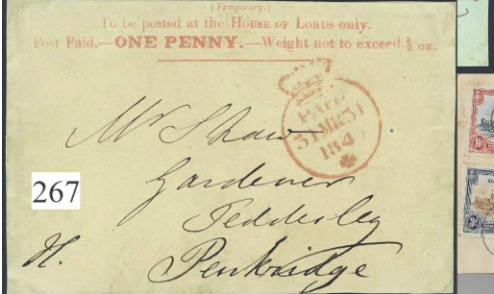 (Temporary.)
To be posted at the HOUSE OF LORDS only.
Post Paid.—ONE PENNY.—Weight not to exceed ½ oz.
PAID
31 MR 31
184
Mr Shaw
Gardener
267
Teddesley
H.
Penkridge